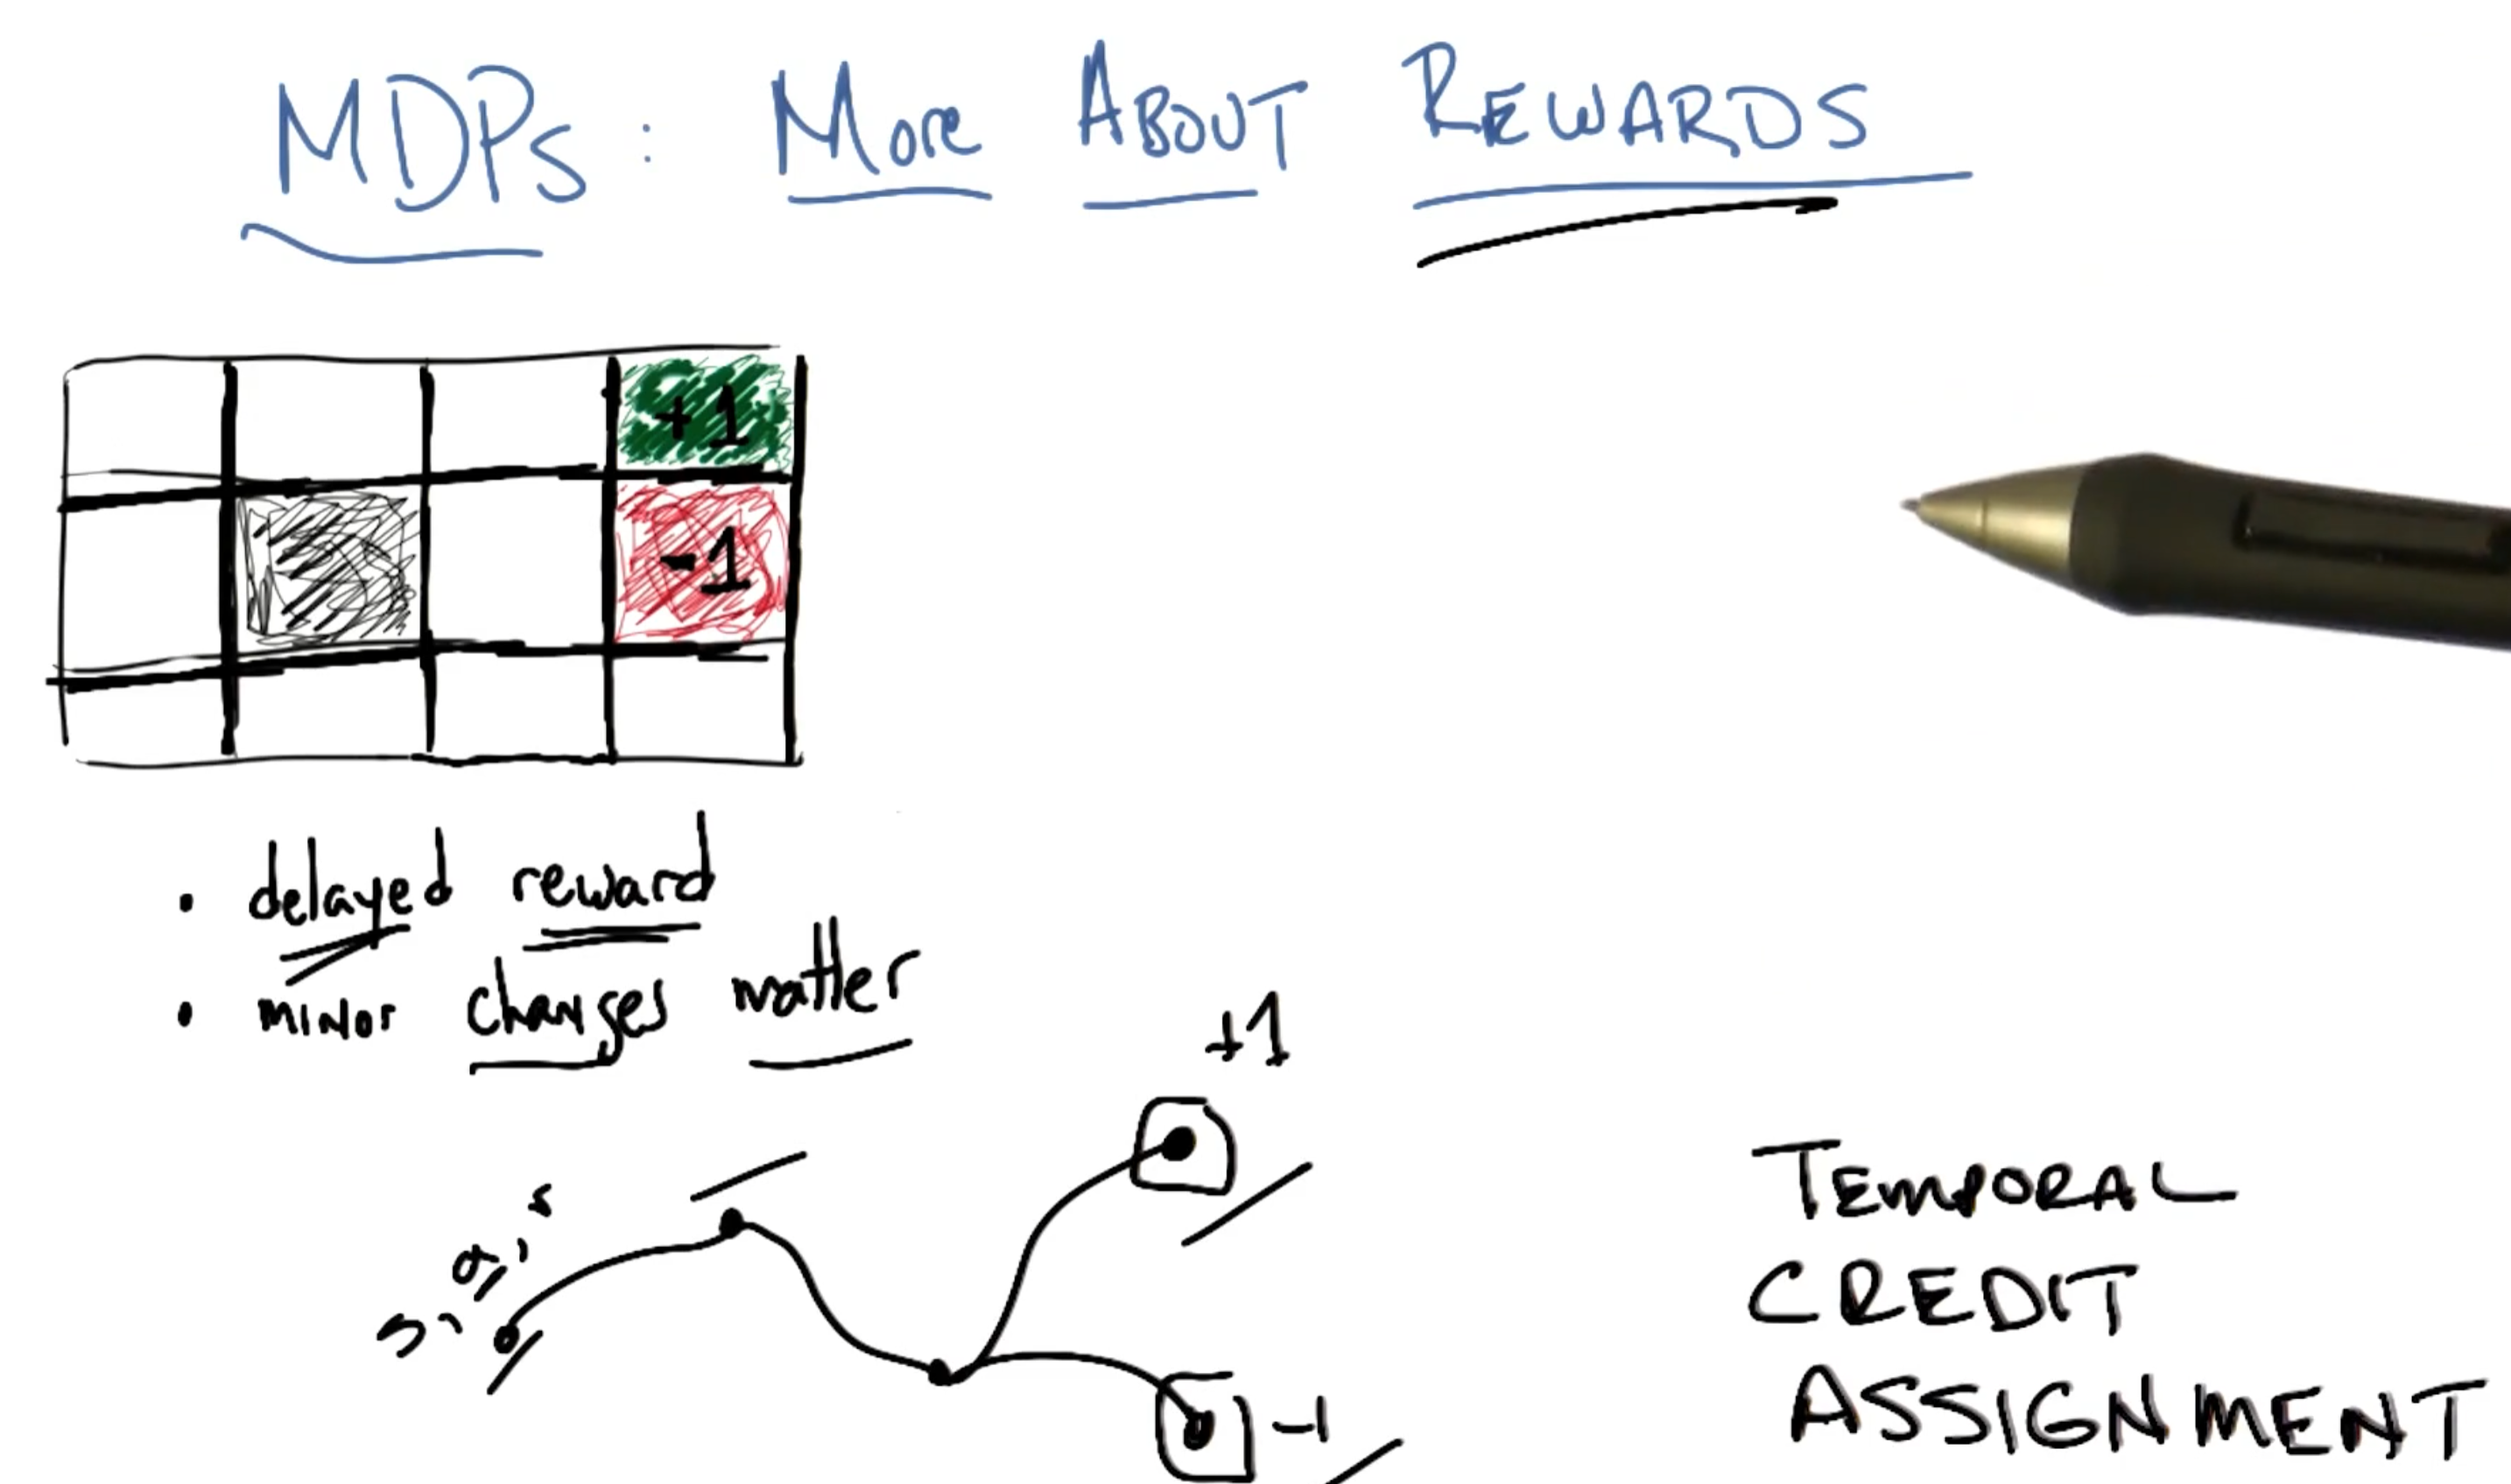 MDPs: More ABOUT REWARDS
+1
-1
• delayed reward
• minor changes matter
+1
s, a, s
-1
TEMPORAL
CREDIT
ASSIGNMENT